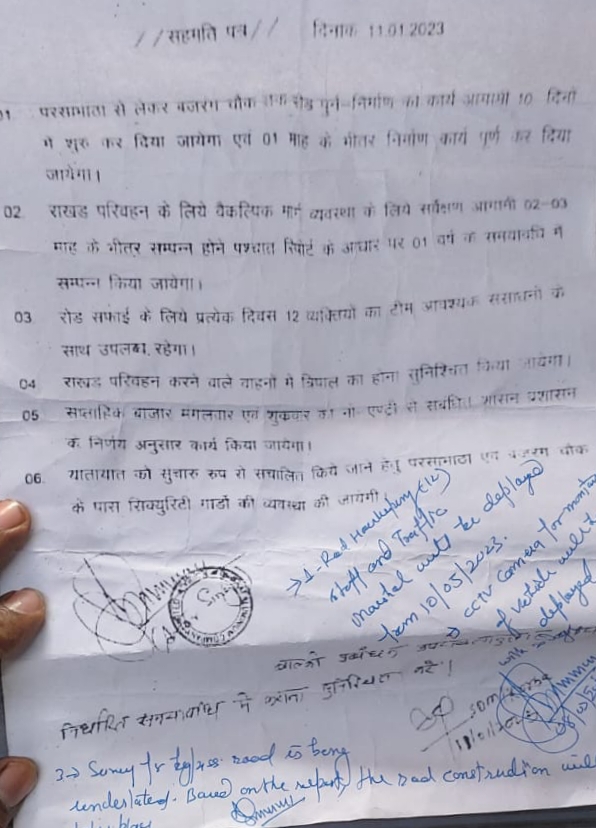 //सहमति पत्र// दिनांक 11.01.2023
01. परसाभाठा से लेकर बजरंग चौक तक रोड पुर्न-निर्माण का कार्य आगामी 10 दिनों
में शुरू कर दिया जायेगा एवं 01 माह के भीतर निर्माण कार्य पूर्ण कर दिया
जायेगा।
02. राखड परिवहन के लिये वैकल्पिक मार्ग व्यवस्था के लिये सर्वेक्षण आगामी 02-03
माह के भीतर सम्पन्न होने पश्चात रिपोर्ट के आधार पर 01 वर्ष के समयावधि में
सम्पन्न किया जायेगा।
03. रोड सफाई के लिये प्रत्येक दिवस 12 व्यक्तियों का टीम आवश्यक संसाधनों के
साथ उपलब्ध रहेगा।
04 राखड परिवहन करने वाले वाहनों में त्रिपाल का होना सुनिश्चित किया जायेगा।
05 साप्ताहिक बाजार मंगलवार एवं शुक्रवार को नो-एण्ट्री से संबंधित शासन प्रशासन
के निर्णय अनुसार कार्य किया जायेगा।
06. यातायात को सुचारु रूप से संचालित किये जाने हेतु परसाभाठा एवं बजरंग चौक
के पास सिक्युरिटी गार्डों की व्यवस्था की जायेगी
→ 1- Road Housekeeping (12)
staff and Traffic
Marshal will be deployed
from 10/05/2023.
→ CCTV Camera for
of vehicle will be
deployed
बालको प्रबंधन
निर्धारित समयावधि में कराना सुनिश्चित करें।
SDM
11/01/2023
3→ Survey for bypass road is being
Based on the report, the road construction will